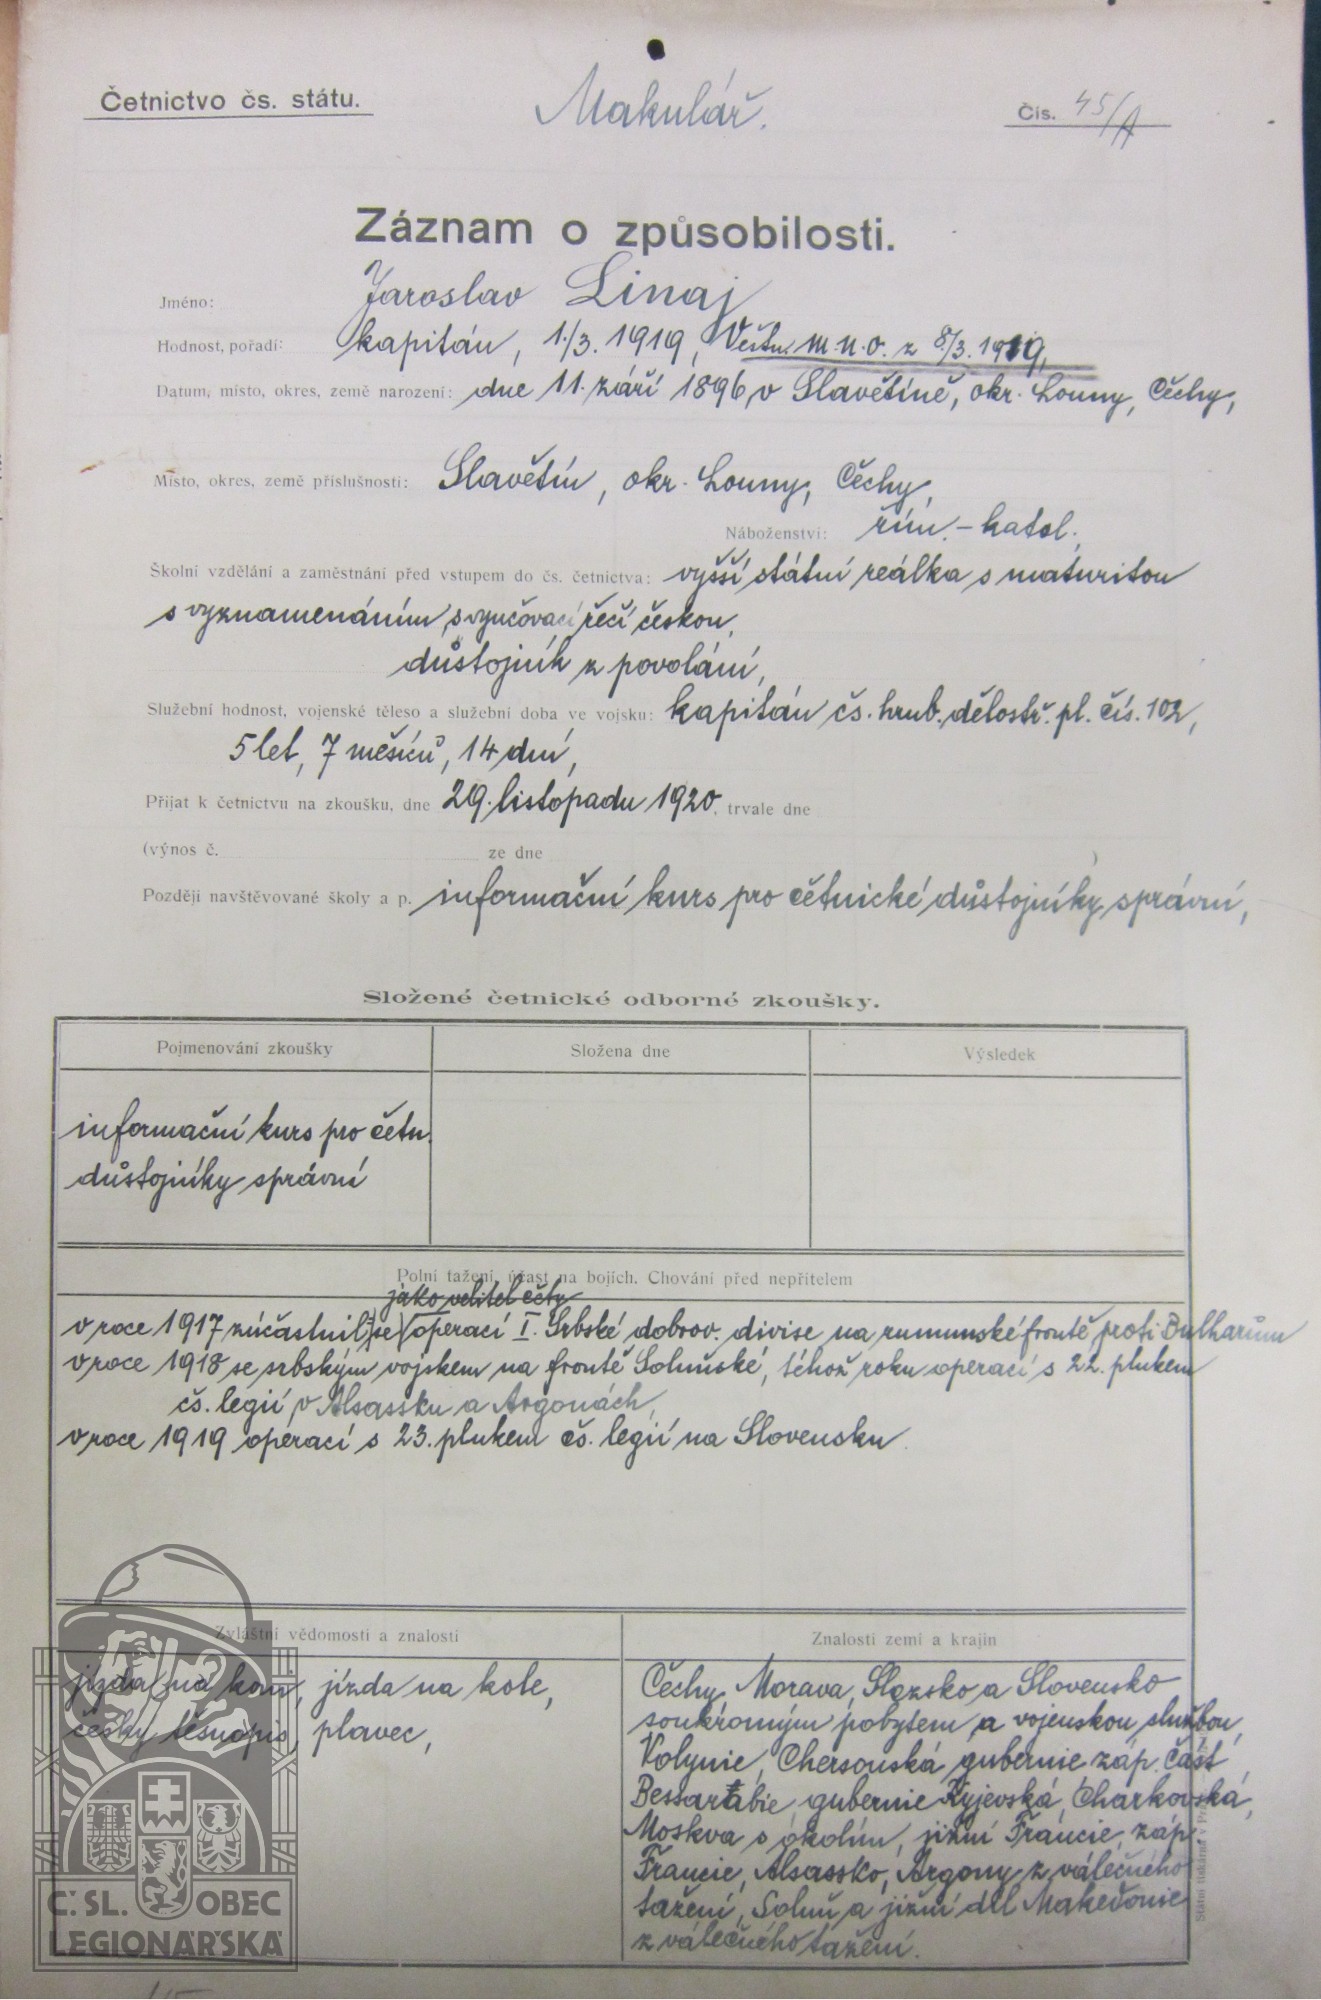 Četnictvo čs. státu.
Makulář.
Čís. 45/A
Záznam o způsobilosti.
Jméno: Jaroslav Linaj
Hodnost, pořadí: kapitán, 1./3. 1919, Věstn. m.n.o. z 8/3. 1919,
Datum, místo, okres, země narození: dne 11. září 1896, v Slavětíně, okr. Louny, Čechy,
Místo, okres, země příslušnosti: Slavětín, okr. Louny, Čechy,
Náboženství: řím.-katol.,
Školní vzdělání a zaměstnání před vstupem do čs. četnictva: vyšší státní reálka s maturitou
s vyznamenáním, s vyučovací řečí českou,
důstojník z povolání,
Služební hodnost, vojenské těleso a služební doba ve vojsku: kapitán čs. hrub. dělostř. pl. čís. 102,
5 let, 7 měsíců, 14 dní,
Přijat k četnictvu na zkoušku, dne 29. listopadu 1920, trvale dne
(výnos č. ze dne
Později navštěvované školy a p. informační kurs pro četnické důstojníky správní,
Složené četnické odborné zkoušky.
Pojmenování zkoušky Složena dne Výsledek
informační kurs pro četn.
důstojníky správní
Polní tažení, účast na bojích. Chování před nepřítelem
jako velitel čety
v roce 1917 zúčastnil se operací I. Srbské dobrov. divise na rumunské frontě proti Bulharům
v roce 1918 se srbským vojskem na frontě Soluňské, téhož roku operací s 22. plukem
čs. legií v Alsassku a Argonách,
v roce 1919 operací s 23. plukem čs. legií na Slovensku.
Zvláštní vědomosti a znalosti
jízda na koni, jízda na kole,
český těsnopis, plavec,
Znalosti zemí a krajin
Čechy, Morava, Slezsko a Slovensko
soukromým pobytem a vojenskou službou,
Volynie, Chersonská gubernie záp. část,
Bessarabie, gubernie Kyjevská, Charkovská,
Moskva s okolím, jižní Francie, záp.
Francie, Alsassko, Argony z válečného
tažení, Soluň a jižní díl Makedonie
z válečného tažení.
Č.SL. OBEC
LEGIONÁŘSKÁ